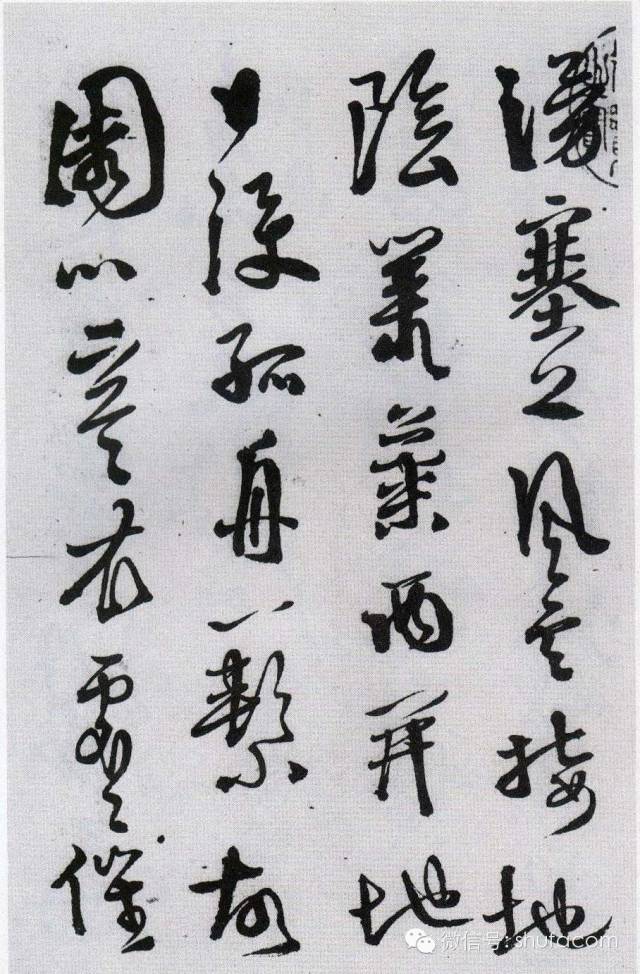 湧塞上風雲接地
陰叢菊兩開他
日淚孤舟一繫故
園心寒衣處〻催
微信号: shufdcom